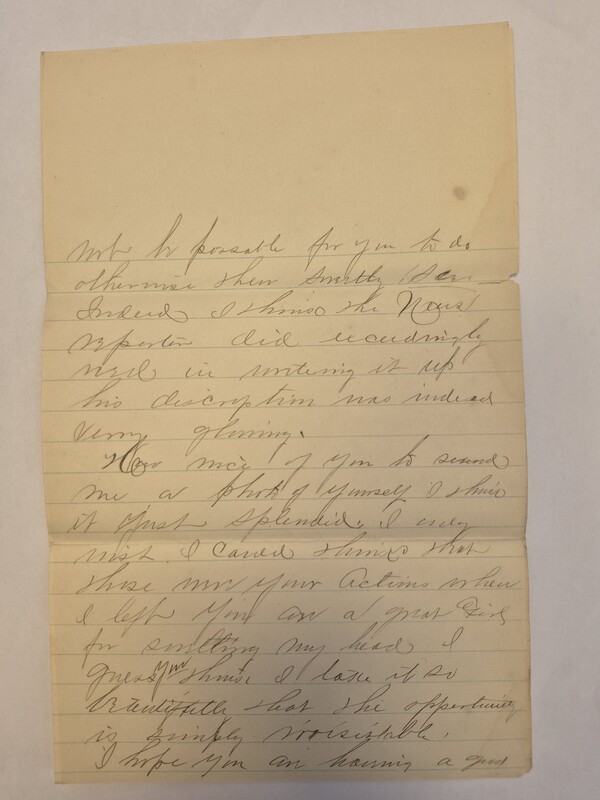 not be possable for you to do
otherwise then smelly
Indeed I think the News
reporter did exceedingly
well in writing it up
his discription was indeed
verry glowing.
How nice of you to send
me a photo of yourself I think
it just splendid. I only
wish I could think that
those were your actions when
I left You are a great Girl
for swelling my head I
guess you think I take it so
beautifully that the oppertunity
is simply irrisistable.
I hope you are having a good